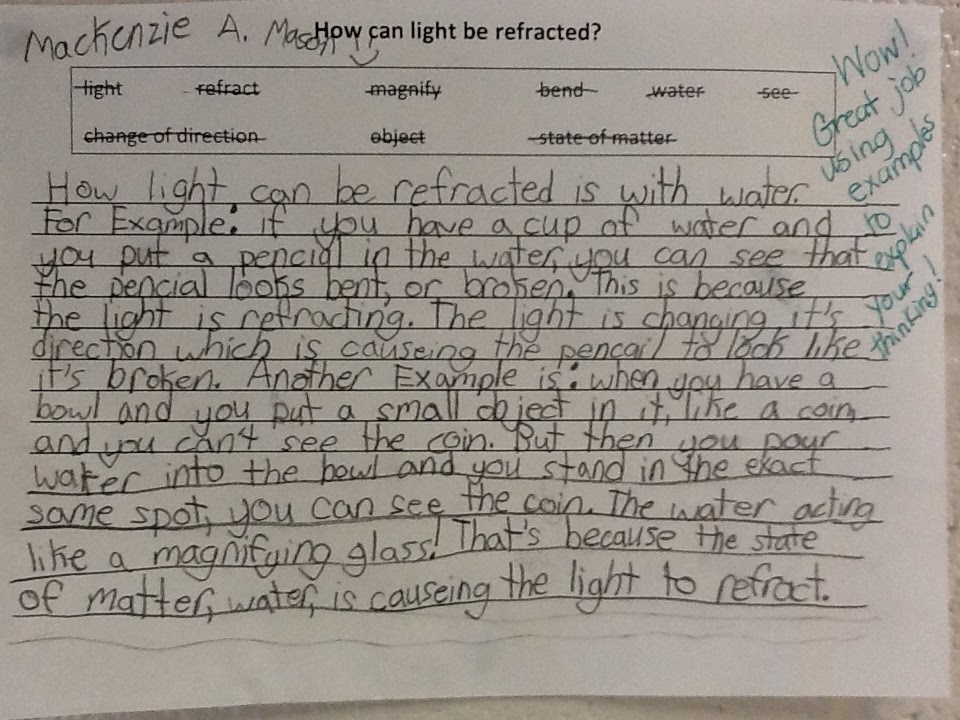 Mackenzie A. Mason
How can light be refracted?
light refract magnify bend water see
change of direction object state of matter
Wow!
Great job
using
examples
to
explain
your
thinking!
How light can be refracted is with water.
For Example: if you have a cup of water and
you put a pencial in the water, you can see that
the pencial looks bent, or broken. This is because
the light is refracting. The light is changing it's
direction which is causeing the pencail to look like
it's broken. Another Example is: when you have a
bowl and you put a small object in it, like a coin,
and you can't see the coin. But then you pour
water into the bowl and you stand in the exact
same spot, you can see the coin. The water acting
like a magnifying glass! That's because the state
of matter, water, is causeing the light to refract.